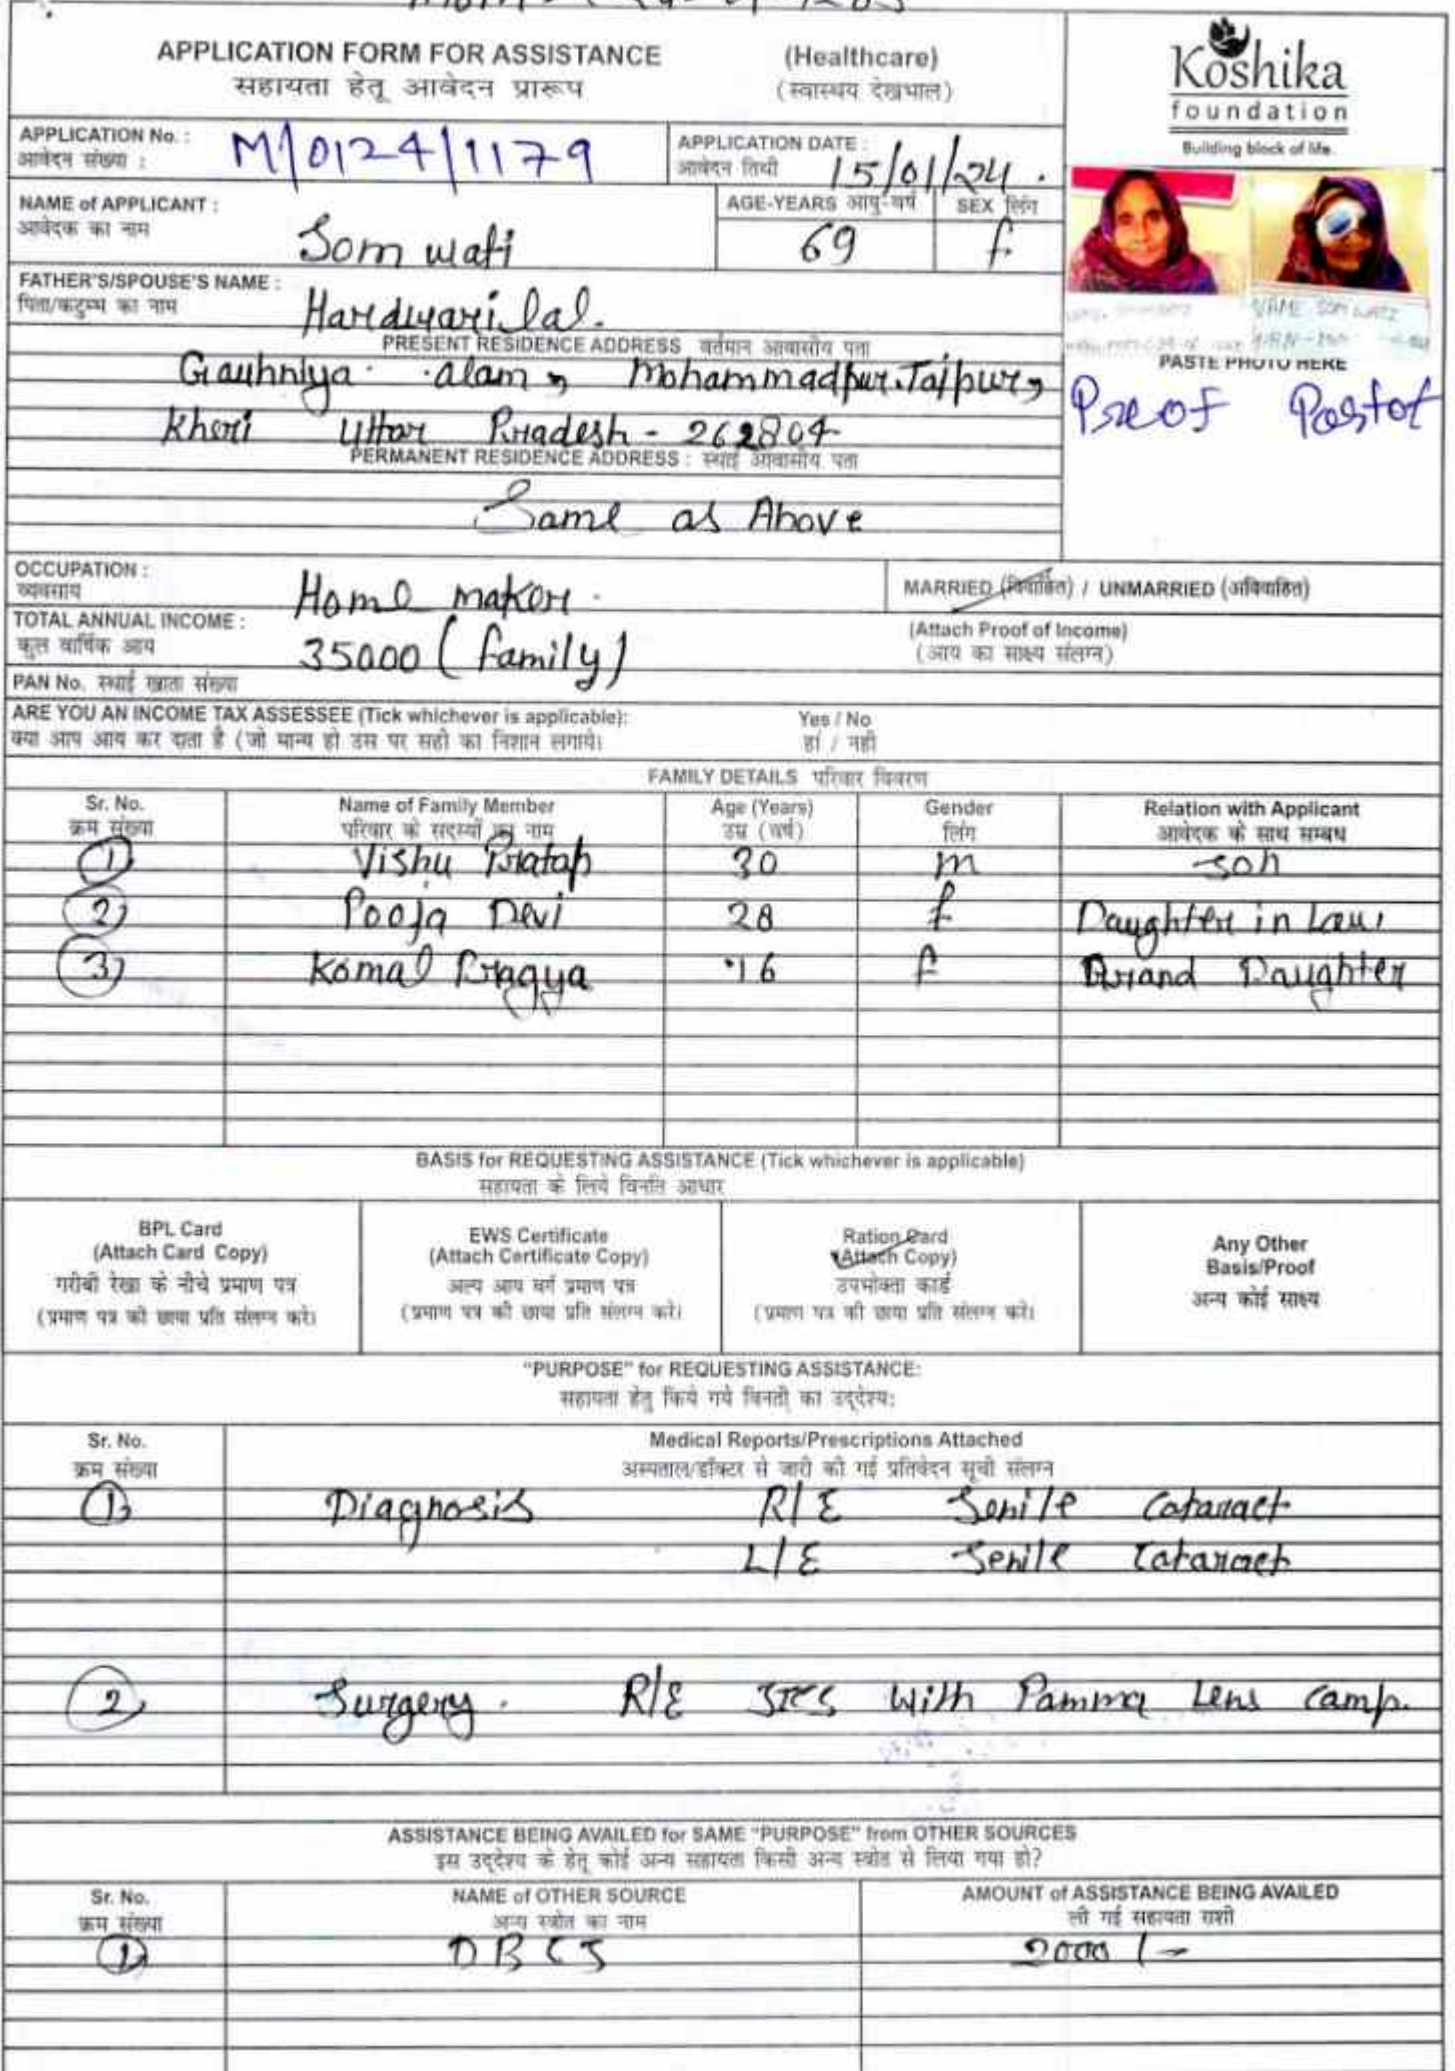 APPLICATION FORM FOR ASSISTANCE (Healthcare)
सहायता हेतू आवेदन प्रारूप (स्वास्थय देखभाल)
Koshika
foundation
Building block of life
APPLICATION No. : M/0124/1179
आवेदन संख्या :
APPLICATION DATE : 15/01/24.
आवेदन तिथी
NAME of APPLICANT : Som wati
आवेदक का नाम
AGE-YEARS आयु-वर्ष 69
SEX लिंग f
FATHER'S/SPOUSE'S NAME : Hardwari lal.
पिता/कटुम्ब का नाम
PRESENT RESIDENCE ADDRESS वर्तमान आवासीय पता
Gauhniya alam, Mohammadpur Tajpur,
Kheri Uttar Pradesh - 262804
PERMANENT RESIDENCE ADDRESS : स्थाई आवासीय पता
Same as Above
NAME SOM WATI
PASTE PHOTO HERE
OCCUPATION : Home maker.
व्यवसाय
MARRIED (विवाहित) / UNMARRIED (अविवाहित)
TOTAL ANNUAL INCOME : 35000 (family)
कुल वार्षिक आय
(Attach Proof of Income)
(आय का साक्ष्य संलग्न)
PAN No. स्थाई खाता संख्या
ARE YOU AN INCOME TAX ASSESSEE (Tick whichever is applicable): Yes / No
क्या आप आय कर दाता है (जो मान्य हो उस पर सही का निशान लगाये। हां / नही
FAMILY DETAILS परिवार विवरण
Sr. No. Name of Family Member Age (Years) Gender Relation with Applicant
क्रम संख्या परिवार के सदस्यों का नाम उम्र (वर्ष) लिंग आवेदक के साथ सम्बध
1 Vishu Pratap 30 m son
2 Pooja Devi 28 f Daughter in Law
3 Komal Pragya 16 f Grand Daughter
BASIS for REQUESTING ASSISTANCE (Tick whichever is applicable)
सहायता के लिये विनति आधार
BPL Card
(Attach Card Copy)
गरीबी रेखा के नीचे प्रमाण पत्र
(प्रमाण पत्र की छाया प्रति संलग्न करे।
EWS Certificate
(Attach Certificate Copy)
अल्प आय वर्ग प्रमाण पत्र
(प्रमाण पत्र की छाया प्रति संलग्न करे।
Ration Card
(Attach Copy)
उपभोक्ता कार्ड
(प्रमाण पत्र की छाया प्रति संलग्न करे।
Any Other
Basis/Proof
अन्य कोई साक्ष्य
"PURPOSE" for REQUESTING ASSISTANCE:
सहायता हेतु किये गये विनती का उद्देश्य:
Sr. No. Medical Reports/Prescriptions Attached
क्रम संख्या अस्पताल/डॉक्टर से जारी की गई प्रतिवेदन सूची संलग्न
1 Diagnosis R/E Senile Cataract
L/E Senile Cataract
2 Surgery. R/E SICS with Pamma Lens camp.
ASSISTANCE BEING AVAILED for SAME "PURPOSE" from OTHER SOURCES
इस उद्देश्य के हेतू कोई अन्य सहायता किसी अन्य स्त्रोत से लिया गया हो?
Sr. No. NAME of OTHER SOURCE AMOUNT of ASSISTANCE BEING AVAILED
क्रम संख्या अन्य स्त्रोत का नाम ली गई सहायता राशी
1 DBCS 2000/-